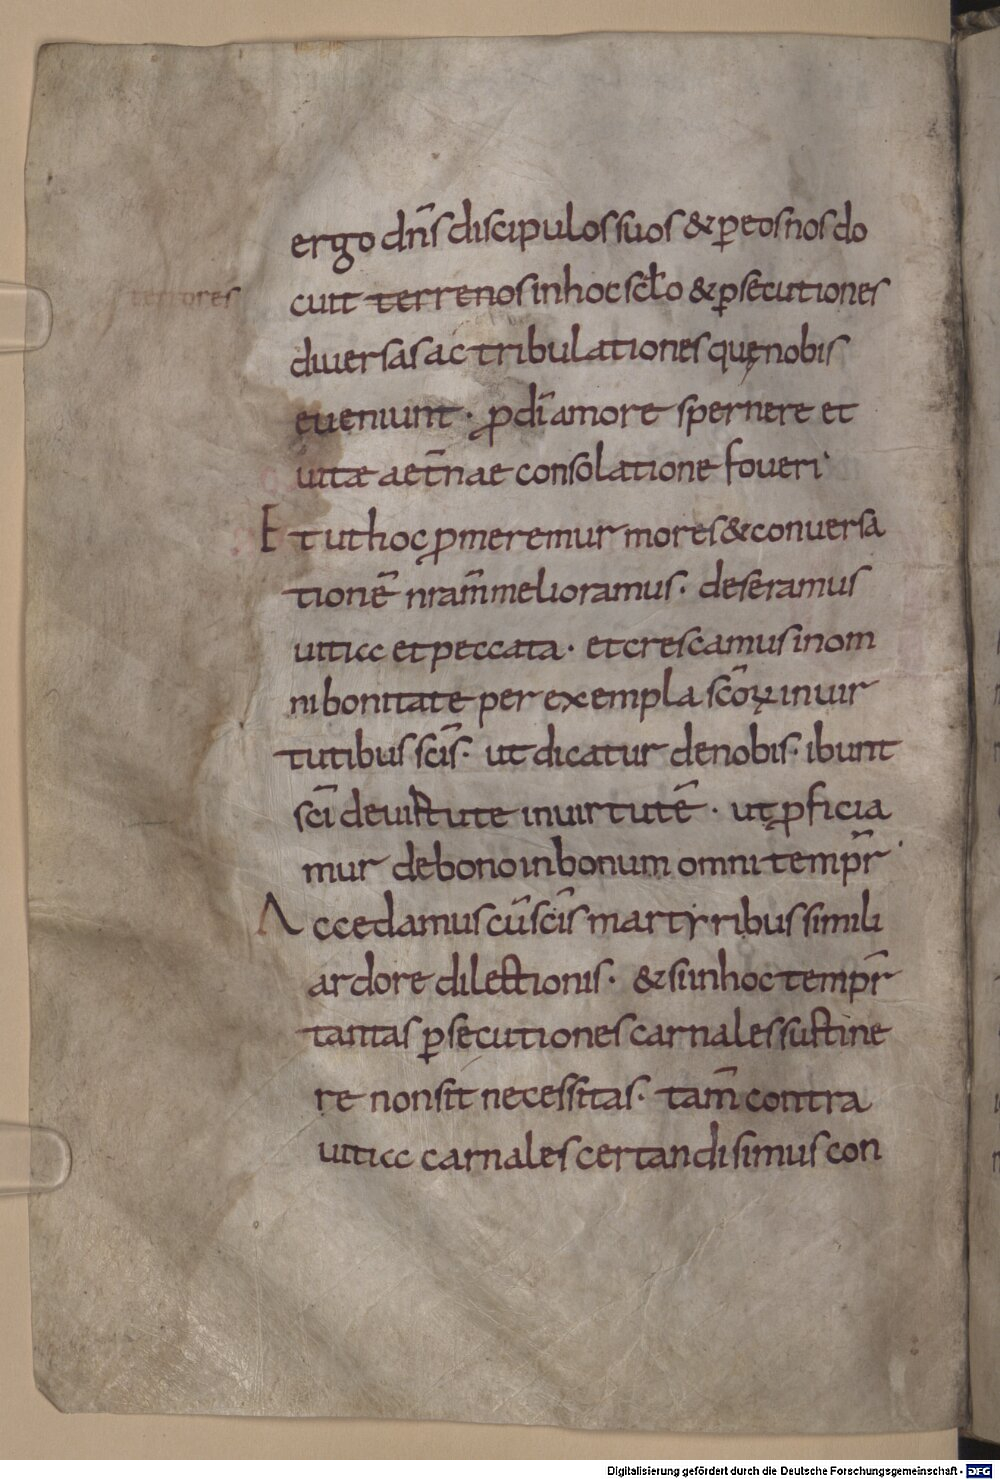 ergo dn̄s discipulos suos & ꝑ eos nos do
terrores
cuit terrenos in hoc sclo & ꝑsecutiones
diuersas ac tribulationes quę nobis
eueniunt · ꝓ dī amore spernere et
uitae aet̄nae consolatione foueri·
Et ut hoc ꝓmeremur mores & conuersa
tionē nram̄ melioramus · deseramus
uitia et peccata · et crescamus in om
ni bonitate per exempla sc̄oꝝ in uir
tutibus sc̄is · ut dicatur de nobis · ibunt
sc̄i de uirtute in uirtutē · ut ꝓficia
mur de bono in bonum omni tempr̄ ·
Accedamus cū sc̄is martyribus simili
ardore dilectionis · & si in hoc tempr̄
tantas ꝑsecutiones carnales sustine
re non sit necessitas · tam̄ contra
uitia carnales certandi simus con
Digitalisierung gefördert durch die Deutsche Forschungsgemeinschaft - DFG